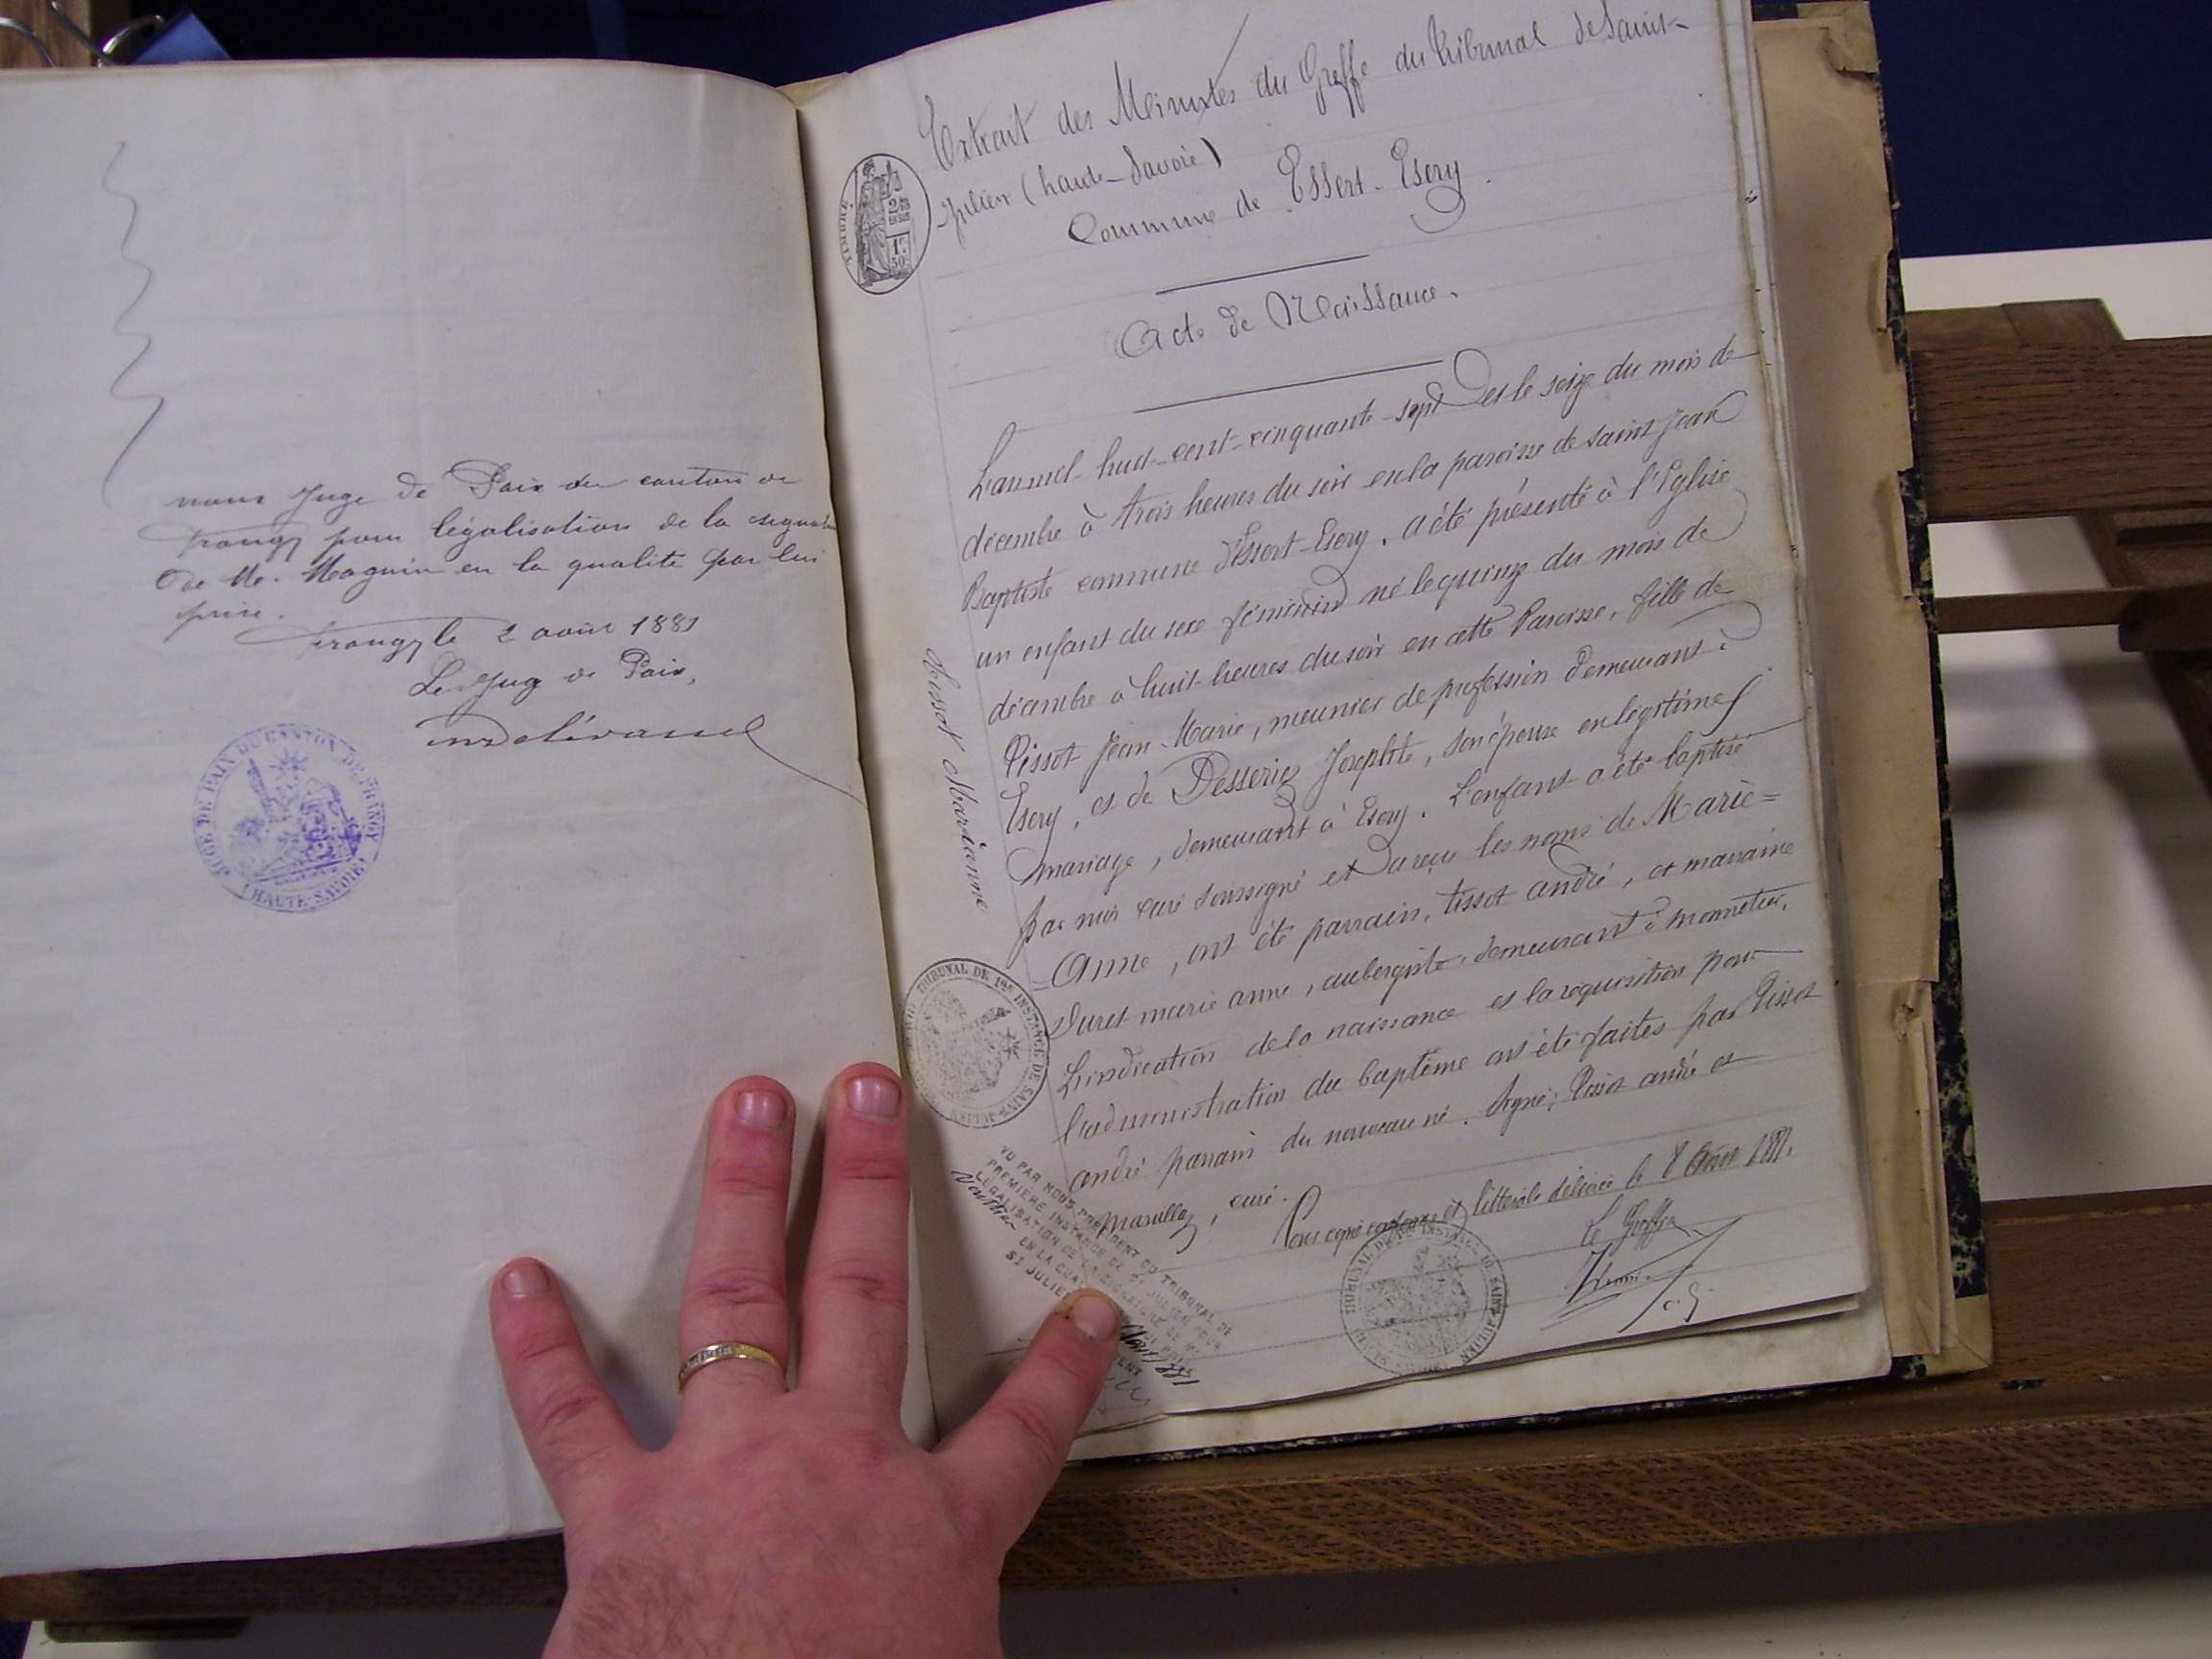 nous Juge de Paix du canton de
frangy pour légalisation de la signature
de Mr. Magnin en la qualité par lui
prise.
frangy le 2 août 1881
Le Juge de Paix,
JUGE DE PAIX DU CANTON DE FRANGY
(HAUTE-SAVOIE)
Extrait des Minutes du Greffe du Tribunal de Saint-
Julien (haute-Savoie)
Commune de Essert-Esery.
TIMBRE
Acte de Naissance.
L'an mil-huit-cent-cinquante-sept et le seize du mois de
décembre à trois heures du soir en la paroisse de saint Jean
Baptiste commune d'Essert-Esery. a été présenté à l'Eglise
un enfant du sexe féminin né le quinze du mois de
décembre à huit-heures du soir en cette Paroisse, fille de
Tissot Jean-Marie, meunier de profession demeurant à
Esery, et de Desseriez Josephte, son épouse en légitime
mariage, demeurant à Esery. L'enfant a été baptisé
par moi curé soussigné et a reçu les noms de Marie=
=Anne, ont été parrain, tissot andré, et marraine
Duret marie anne, aubergiste, demeurant à monnetier,
L'indication de la naissance et la requisition pour
l'administration du baptême ont été faites par Tissot
andré parrain du nouveau né. Signé; Tissot andré et
Marullaz, curé.
Pour copie conforme et littérale délivrée le 1 Août 1881.
Le Greffier
Tissot Marianne
TRIBUNAL DE 1RE INSTANCE DE SAINT-JULIEN
VU PAR NOUS, PRÉSIDENT DU TRIBUNAL DE
PREMIÈRE INSTANCE DE ST JULIEN POUR
LÉGALISATION DE LA SIGNATURE DE MR
EN LA QUALITÉ
ST JULIEN
Août 1881
TRIBUNAL DE 1RE INSTANCE DE SAINT-JULIEN